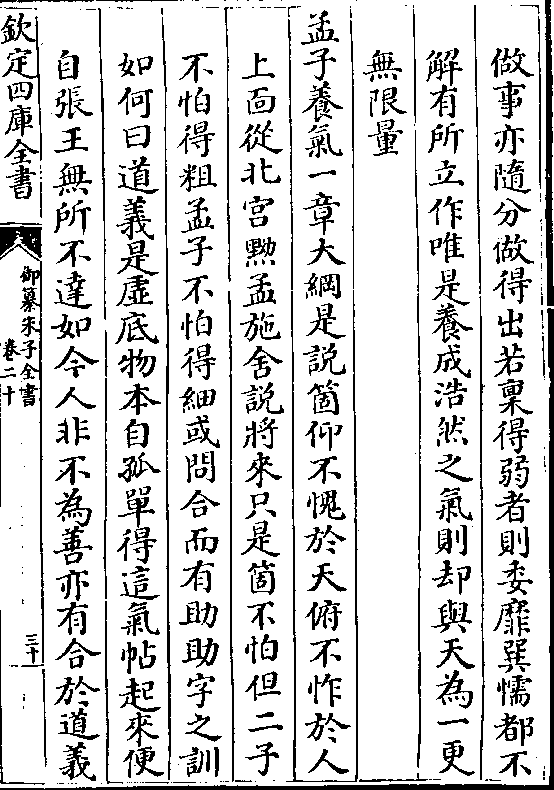 做事亦隨分做得出若稟得弱者則委靡巽懦都不
解有所立作唯是養成浩然之氣則却與天為一更
無限量
孟子養氣一章大綱是說箇仰不愧於天俯不怍於人
上面從北宫黝孟施舍說將來只是箇不怕但二子
不怕得粗孟子不怕得細或問合而有助助字之訓
如何曰道義是虛底物本自孤單得這氣帖起來便
自張王無所不達如今人非不為善亦有合於道義
欽定四庫全書
御纂朱子全書
卷二十
三十